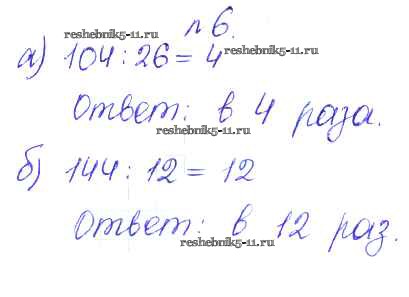 № 6.
reshebnik5-11.ru
reshebnik5-11.ru
а) 104 : 26 = 4
Ответ: в 4 раза.
reshebnik5-11.ru
б) 144 : 12 = 12
Ответ: в 12 раз.
reshebnik5-11.ru